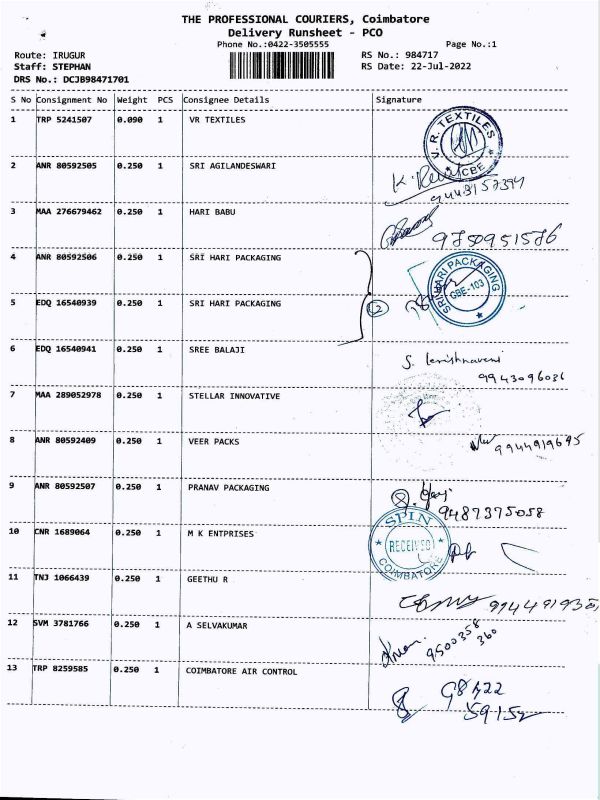 THE PROFESSIONAL COURIERS, Coimbatore
Delivery Runsheet - PCO
Phone No.:0422-3505555 Page No.:1
Route: IRUGUR RS No.: 984717
Staff: STEPHAN RS Date: 22-Jul-2022
DRS No.: DCJB98471701
S No Consignment No Weight PCS Consignee Details Signature
1 TRP 5241507 0.090 1 VR TEXTILES
V. R. TEXTILES CBE
2 ANR 80592505 0.250 1 SRI AGILANDESWARI
9443157394
3 MAA 276679462 0.250 1 HARI BABU
9750951576
4 ANR 80592506 0.250 1 SRI HARI PACKAGING
SRI HARI PACKAGING CBE-103
5 EDQ 16540939 0.250 1 SRI HARI PACKAGING
2
6 EDQ 16540941 0.250 1 SREE BALAJI
S. krishnaveni
9943096036
7 MAA 289052978 0.250 1 STELLAR INNOVATIVE
8 ANR 80592409 0.250 1 VEER PACKS
9944919695
9 ANR 80592507 0.250 1 PRANAV PACKAGING
9487375058
10 CNR 1689064 0.250 1 M K ENTPRISES
SPIN RECEIVED COIMBATORE
11 TNJ 1066439 0.250 1 GEETHU R
12 SVM 3781766 0.250 1 A SELVAKUMAR
9500358
360
13 TRP 8259585 0.250 1 COIMBATORE AIR CONTROL